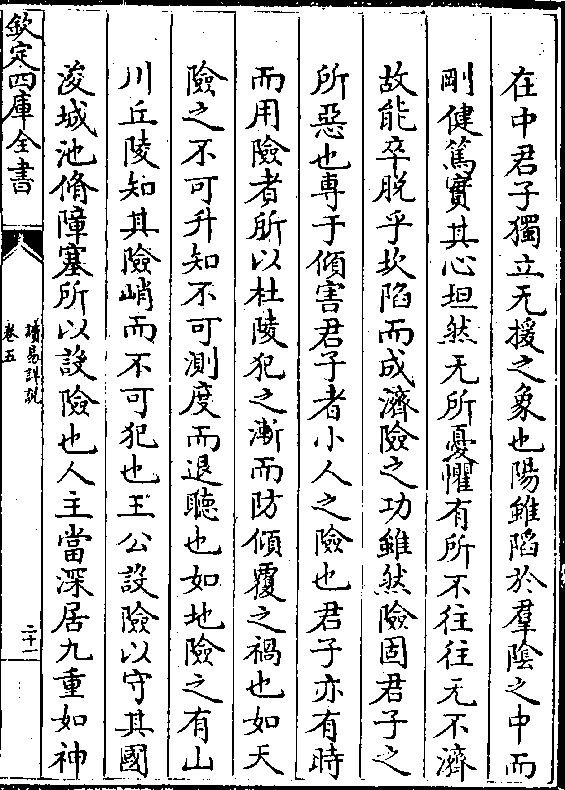 在中君子獨立无援之象也陽雖陷於羣陰之中而
剛健篤實其心坦然无所憂懼有所不往往无不濟
故能卒脱乎坎陷而成濟險之功雖然險固君子之
所惡也專于傾害君子者小人之險也君子亦有時
而用險者所以杜陵犯之漸而防傾覆之禍也如天
險之不可升知不可測度而退聽也如地險之有山
川丘陵知其險峭而不可犯也王公設險以守其國
浚城池脩障塞所以設險也人主當深居九重如神
欽定四庫全書
讀易詳說
卷五
二十一